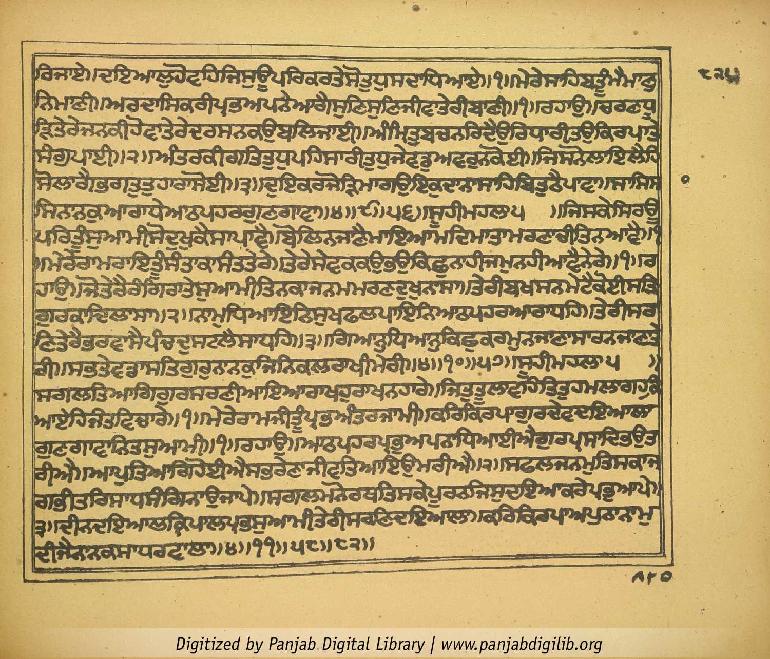 ਰਿਜਾਏ॥ਦਇਆਲੁਹੋਟਹਿਜਿਸੁਊਪਰਿਕਰਤੇਸੋਤੁਧੁਸਦਾਧਿਆਏ॥੧॥ਮੇਰੇਸਾਹਿਬਤੂੰਮੈਮਾਣੁ
ਨਿਮਾਣੀ॥ਅਰਦਾਸਿਕਰੀਪ੍ਰਭਅਪਨੇਆਗੈਸੁਣਿਸੁਣਿਜੀਵਾਤੇਰੀਬਾਣੀ॥੧॥ਰਹਾਉ॥ਚਰਣਧੂ
ੜਿਤੇਰੇਜਨਕੀਹੋਵਾਤੇਰੇਦਰਸਨਕਉਬਲਿਜਾਈ॥ਅੰਮ੍ਰਿਤਬਚਨਰਿਦੈਉਰਿਧਾਰੀਤਉਕਿਰਪਾਤੇ
ਸੰਗੁਪਾਈ॥੨॥ਅੰਤਰਕੀਗਤਿਤੁਧੁਪਹਿਸਾਰੀਤੁਧੁਜੇਵਡੁਅਵਰੁਨਕੋਈ॥ਜਿਸਨੋਲਾਇਲੈਹਿ
ਸੋਲਾਗੈਭਗਤੁਤੁਹਾਰਾਸੋਈ॥੩॥ਦੁਇਕਰਜੋੜਿਮਾਗਉਇਕੁਦਾਨਾਸਾਹਿਬਿਤੁਠੈਪਾਵਾ॥ਸਾਸਿਸਾ
ਸਿਨਾਨਕੁਆਰਾਧੇਆਠਪਹਰਗੁਣਗਾਵਾ॥੪॥੯॥੫੬॥ਸੂਹੀਮਹਲਾ੫ ॥ਜਿਸਕੇਸਿਰਊ
ਪਰਿਤੂੰਸੁਆਮੀਸੋਦੁਖੁਕੈਸਾਪਾਵੈ॥ਬੋਲਿਨਜਾਣੈਮਾਇਆਮਦਿਮਾਤਾਮਰਣਾਚੀਤਿਨਆਵੈ॥੧
॥ਮੇਰੇਰਾਮਰਾਇਤੂੰਸੰਤਾਕਾਸੰਤਤੇਰੇ॥ਤੇਰੇਸੇਵਕਕਉਭਉਕਿਛੁਨਾਹੀਜਮੁਨਹੀਆਵੈਨੇਰੇ॥੧॥ਰ
ਹਾਉ॥ਜੋਤੇਰੈਰੰਗਿਰਾਤੇਸੁਆਮੀਤਿਨਕਾਜਨਮਮਰਣਦੁਖੁਨਾਸਾ॥ਤੇਰੀਬਖਸਨਮੇਟੈਕੋਈਸਤਿ
ਗੁਰਕਾਦਿਲਾਸਾ॥੨॥ਨਾਮੁਧਿਆਇਨਿਸੁਖਫਲਪਾਇਨਿਆਠਪਹਰਆਰਾਧਹਿ॥ਤੇਰੀਸਰ
ਣਿਤੇਰੈਭਰਵਾਸੈਪੰਚਦੁਸਟਲੈਸਾਧਹਿ॥੩॥ਗਿਆਨੁਧਿਆਨੁਕਿਛੁਕਰਮੁਨਜਾਣਾਸਾਰਨਜਾਣਾਤੇ
ਰੀ॥ਸਭਤੇਵਡਾਸਤਿਗੁਰੁਨਾਨਕੁਜਿਨਿਕਲਰਾਖੀਮੇਰੀ॥੪॥੧੦॥੫੭॥ਸੂਹੀਮਹਲਾ੫ ॥
ਸਗਲਤਿਆਗਿਗੁਰਸਰਣੀਆਇਆਰਾਖਹੁਰਾਖਨਹਾਰੇ॥ਜਿਤੁਤੂਲਾਵਹਿਤਿਤੁਹਮਲਾਗਹਕਿ
ਆਏਹਿਜੰਤਵਿਚਾਰੇ॥੧॥ਮੇਰੇਰਾਮਜੀਤੂੰਪ੍ਰਭਅੰਤਰਜਾਮੀ॥ਕਰਿਕਿਰਪਾਗੁਰਦੇਵਦਇਆਲਾ
ਗੁਣਗਾਵਾਨਿਤਸੁਆਮੀ॥੧॥ਰਹਾਉ॥ਆਠਪਹਰਪ੍ਰਭੁਅਪਨਾਧਿਆਈਐਗੁਰਪ੍ਰਸਾਦਿਭਉਤ
ਰੀਐ॥ਆਪੁਤਿਆਗਿਹੋਈਐਸਭਰੇਣਾਜੀਵਤਿਆਇਉਮਰੀਐ॥੨॥ਸਫਲਜਨਮੁਤਿਸਕਾਜ
ਗਭੀਤਰਿਸਾਧਸੰਗਿਨਾਉਜਾਪੇ॥ਸਗਲਮਨੋਰਥਤਿਸਕੇਪੂਰਨਜਿਸੁਦਇਆਕਰੇਪ੍ਰਭੁਆਪੇ॥
੩॥ਦੀਨਦਇਆਲਕ੍ਰਿਪਾਲਪ੍ਰਭਸੁਆਮੀਤੇਰੀਸਰਣਿਦਇਆਲਾ॥ਕਰਿਕਿਰਪਾਅਪੁਨਾਨਾਮੁ
ਦੀਜੈਨਾਨਕਸਾਧਰਵਾਲਾ॥੪॥੧੧॥੫੮॥੮੨॥
Digitized by Panjab Digital Library | www.panjabdigilib.org